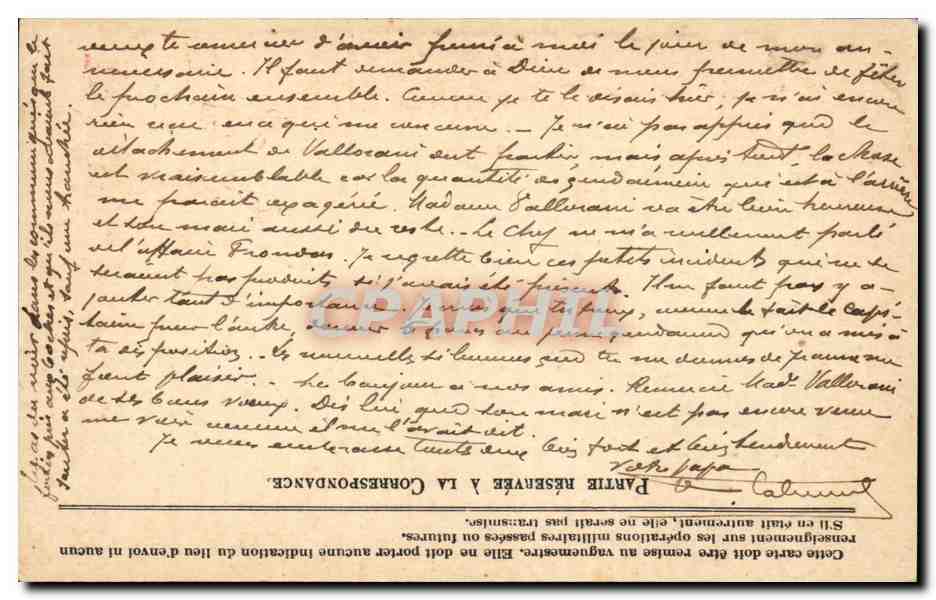 veux te remercier d'avoir pensé à moi le jour de mon an-
niversaire. Il faut demander à Dieu de nous permettre de fêter
le prochain ensemble. Comme je te le disais hier, je n'ai encore
rien reçu en ce qui me concerne. - Je n'ai pas appris que le
détachement de Vallorani doit partir, mais après tout, la chose
est vraisemblable car la quantité de gendarmerie qui est à l'arrière
me paraît exagérée. Madame Vallorani va être bien heureuse
et son mari aussi du reste. - Le Chef ne m'a nullement parlé
de l'affaire Frondas. Je regrette bien ces petits incidents qui ne se
seraient pas produits si j'avais été présent. Il ne faut pas y a-
jouter tant d'importance comme le fait le capi-
taine pour l'autre, gendarme qu'on a mis à
ta disposition. - Les nouvelles que tu me donnes de me
font plaisir. - Le bonjour à nos amis. Remercie Mad. Vallorani
de ses bons vœux. Dis lui que son mari n'est pas encore venu
me voir comme il me l'avait dit.
Je vous embrasse toutes deux bien fort et bien tendrement
Votre papa
PARTIE RÉSERVÉE À LA CORRESPONDANCE.
Cette carte doit être remise au vaguemestre. Elle ne doit porter aucune indication du lieu d'envoi ni aucun
renseignement sur les opérations militaires passées ou futures.
S'il en était autrement, elle ne serait pas transmise.
dans les communiqués que le
pris aux boches et qu'ils nous avaient fait
sauter a été repris, sauf une tranchée.
CPAPHIL